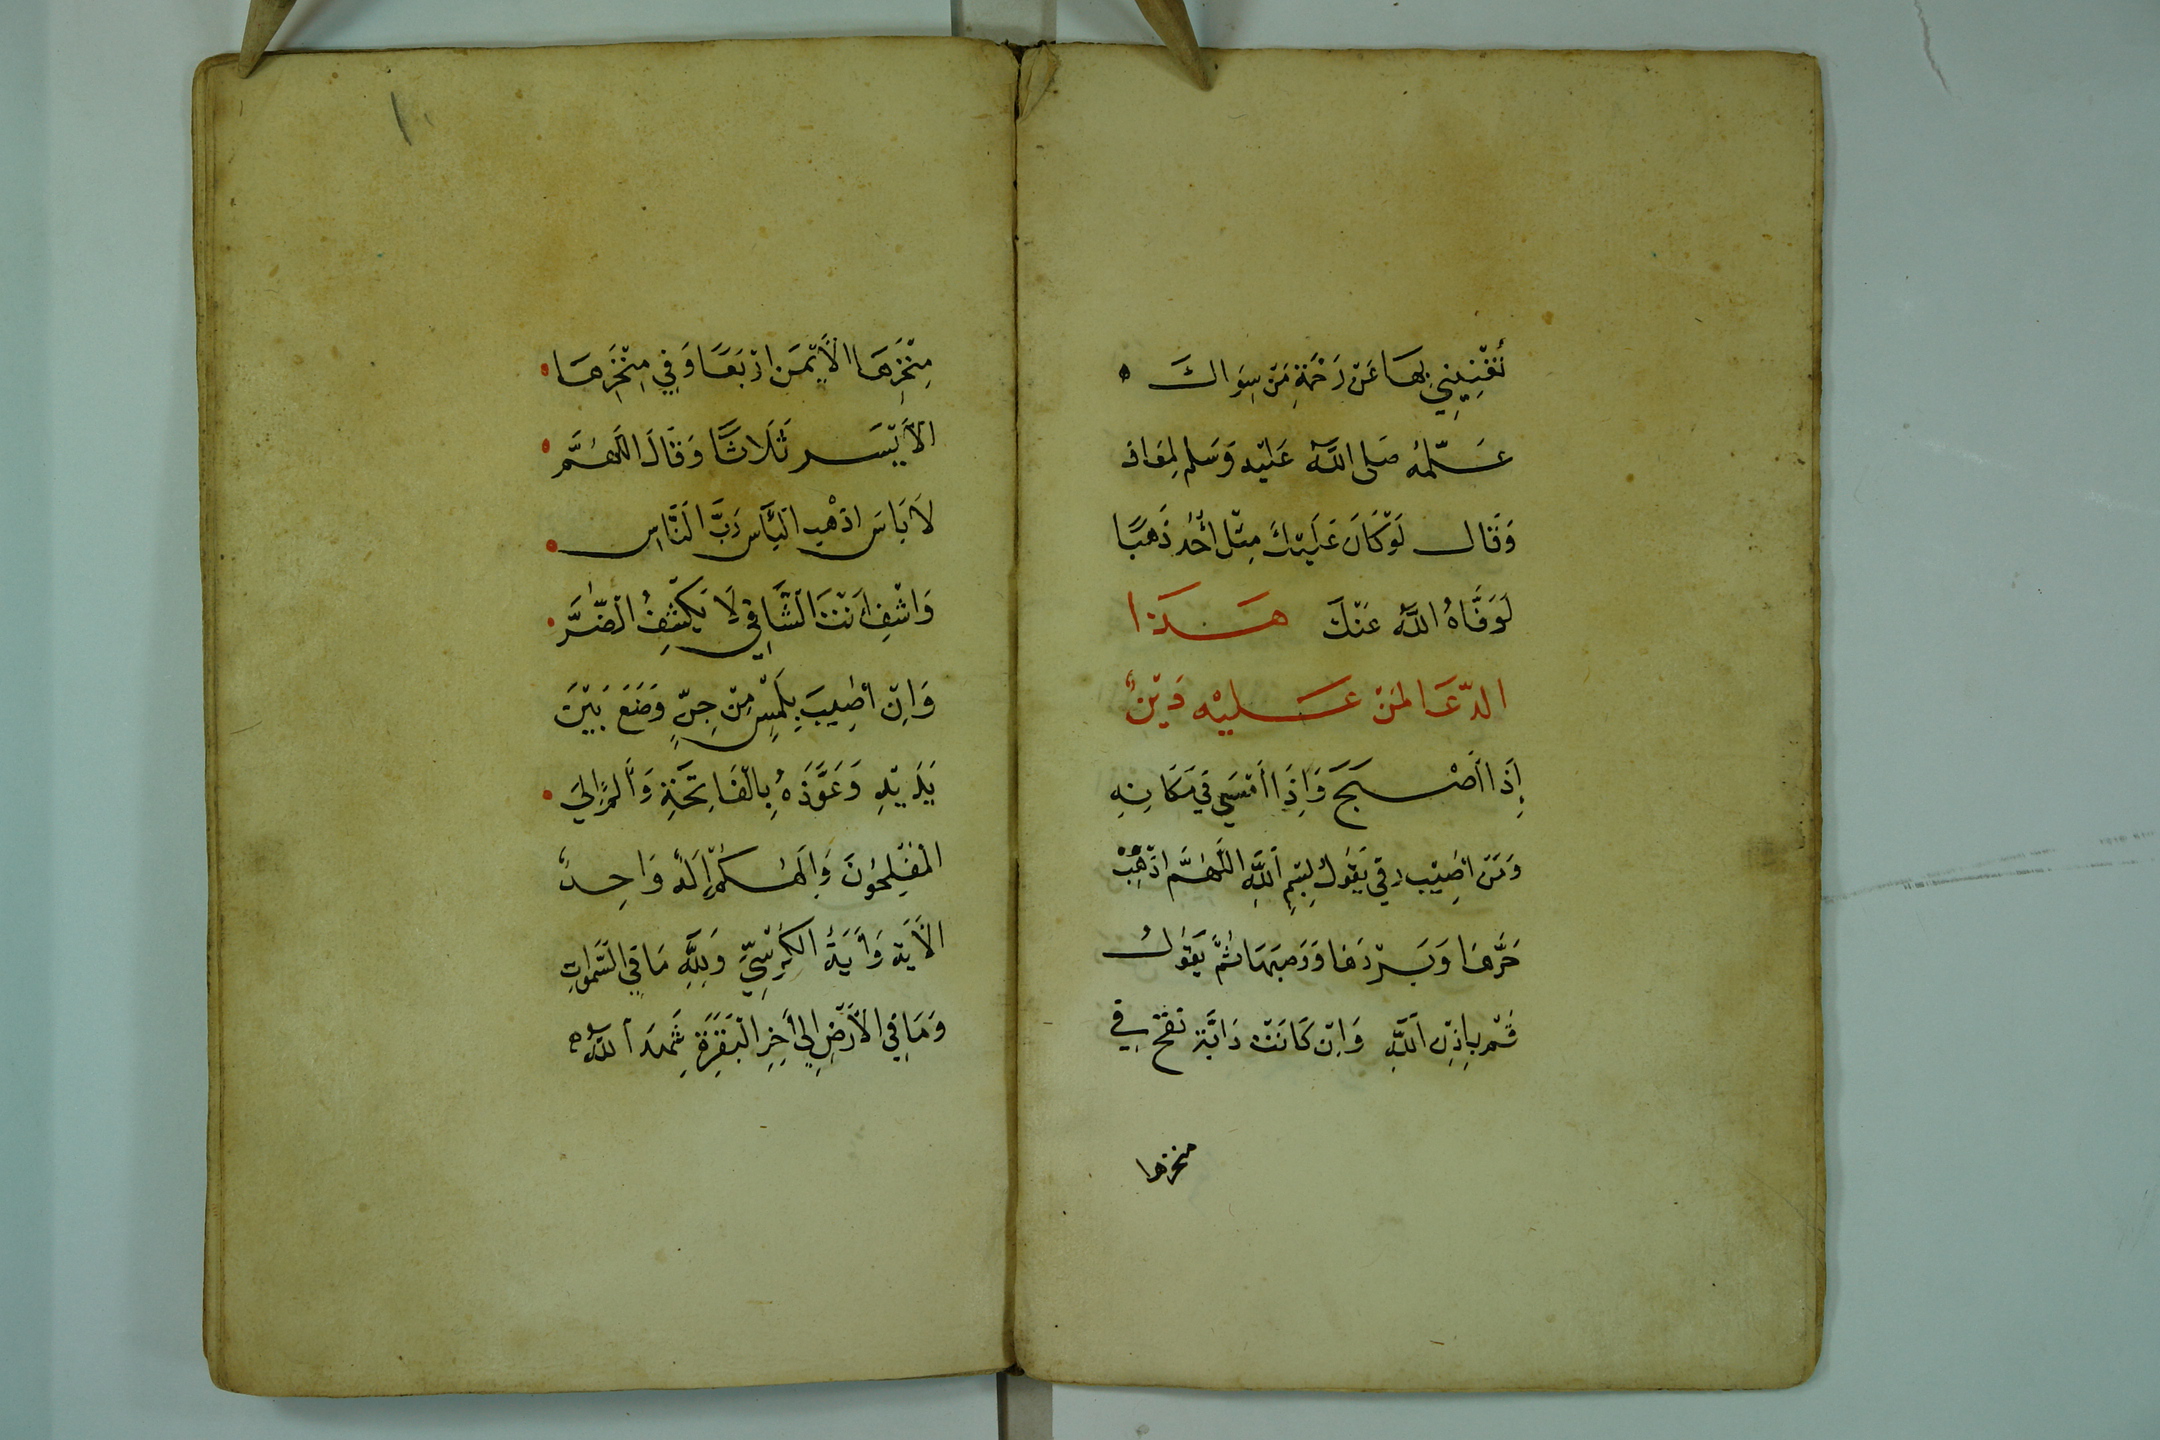 تُغْنِينِي بِهَا عَنْ رَحْمَةِ مَنْ سِوَاكَ ه
عَلَّمَهُ صَلى اللَّهُ عَلَيْهِ وَسَلم لِمَعَاذ
وَقَال لَوْ كَانَ عَلَيْكَ مِثْل أُحُدٍ ذَهَبًا
لَوَفَّاهُ اللَّهُ عَنْكَ هَكَذا
الدّعَا لمَنْ عَليْهِ دَيْنٌ
إِذَا أَصْبَحَ وَإِذَا أَمْسَى فِي مَكَانِهِ
وَمَنْ أُصِيْب رقي بِقَوْلِ بِسْمِ اللَّهِ اللَّهُمَّ اذْهِبْ
حَرَّهَا وَبَرْدَهَا وَوَصَبَهَا ثُمَّ يَقُولُ
قُمْ بِإِذْنِ اللَّهِ وَاِنْ كَانَتْ دَابَّة نفَثَ فِي
منخرها
مِنْخَرِهَا الأَيْمَنِ ارْبَعًا وَفِي مِنْخَرِهَا
الأَيْسَر ثَلَاثًا وَقَالَ اللَّهُمَّ
لاَ بَاسَ اذْهِبِ الْبَأْسَ رَبَّ النَّاسِ
وَاشْفِ أَنْتَ الشَّافِي لَا يَكْشِفُ الضُّرَّ
وَاِنْ أُصِيبَ بِلَمْسٍ مِنْ جِنٍّ وَضَعَ بَيْنَ
يَدَيْهِ وَعَوَّذَهُ بِالْفَاتِحَةِ وَالم إلَى
الْمُفْلِحُونَ وَإِلَهُكُمْ إِلَهٌ وَاحِدٌ
الأَيَة وَأَيَةُ الكُرْسِيِّ وَلِلَّهِ مَا فِي السَّمَواتِ
وَمَا فِي الأَرْضِ إِلَى أَخِرِ الْبَقَرَةِ شَهِدَ اللَّهُ ه